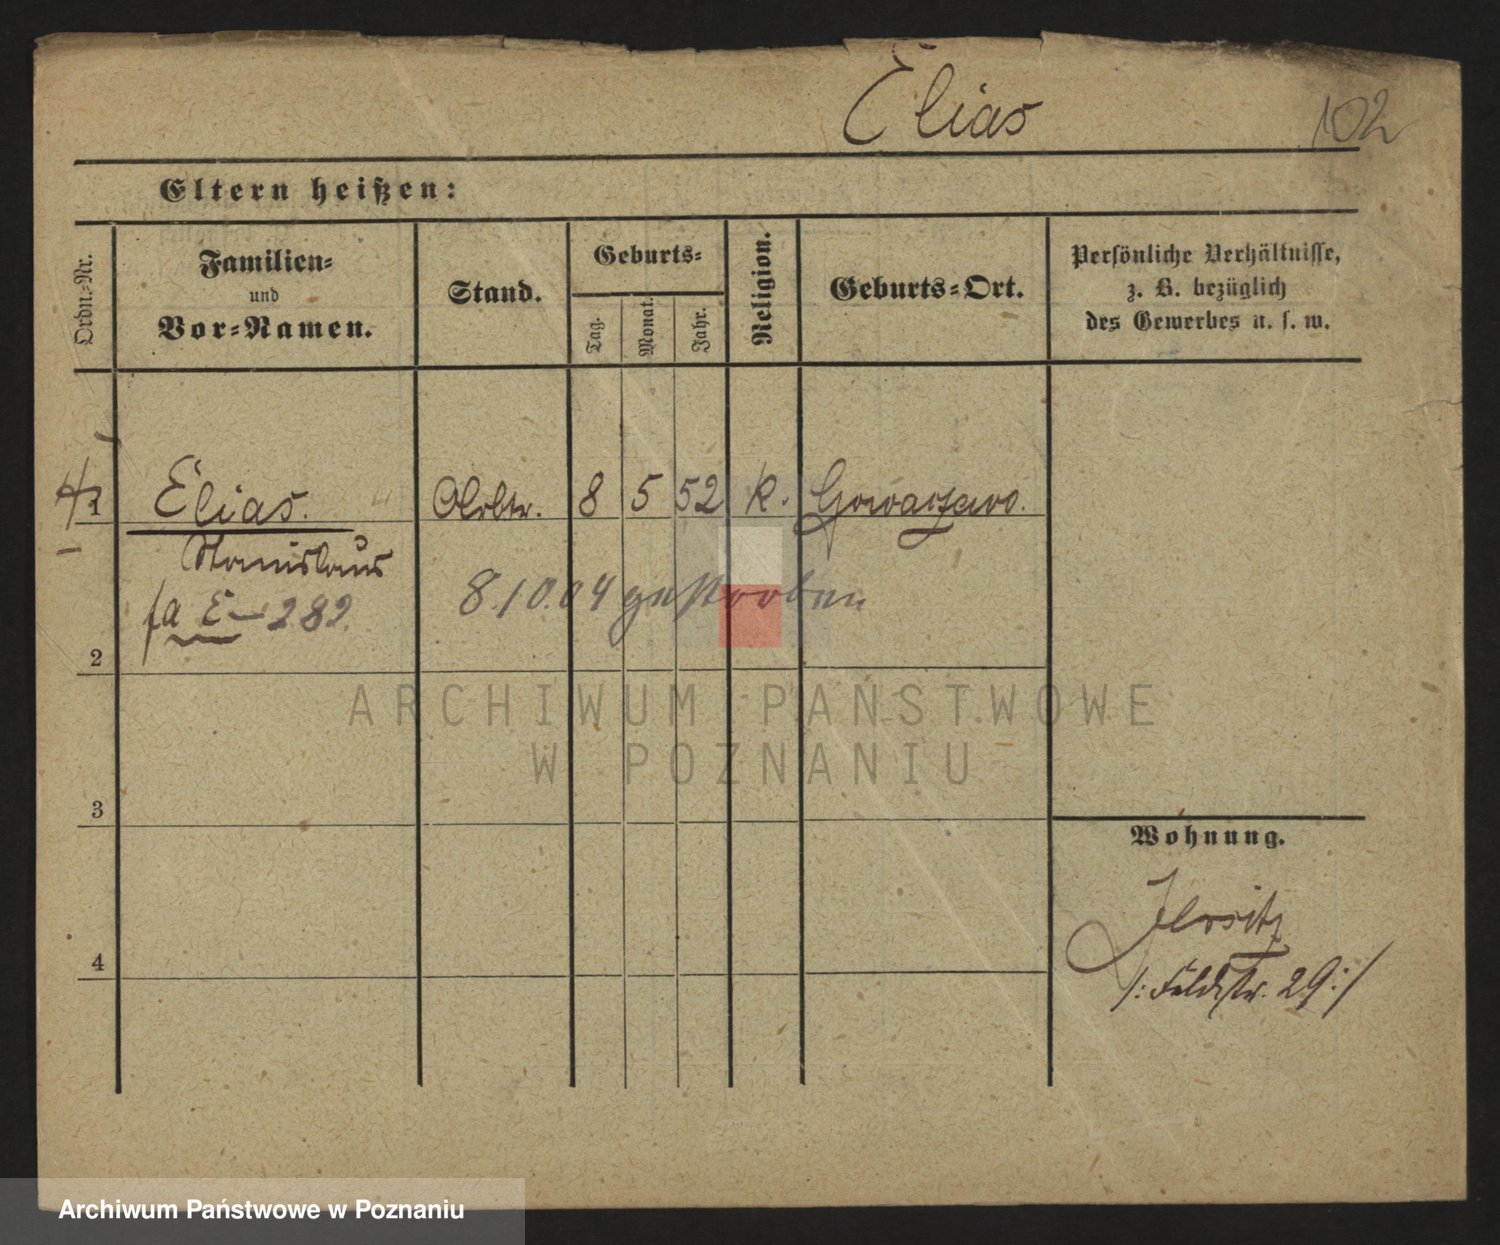 Elias
102
Eltern heißen:
Ordn.-Nr.
Familien-
und
Vor-Namen.
Stand.
Geburts-
Tag.
Monat.
Jahr.
Religion.
Geburts-Ort.
Persönliche Verhältnisse,
z. B. bezüglich
des Gewerbes u. s. w.
1
Elias. Arbtr. 8 5 52 k. Gowarzewo.
Stanislaus
fa E-282.
8.10.04 gestorben
2
ARCHIWUM PAŃSTWOWE
W POZNANIU
3
Wohnung.
Jersitz
/: Feldstr. 29 :/
4
Archiwum Państwowe w Poznaniu